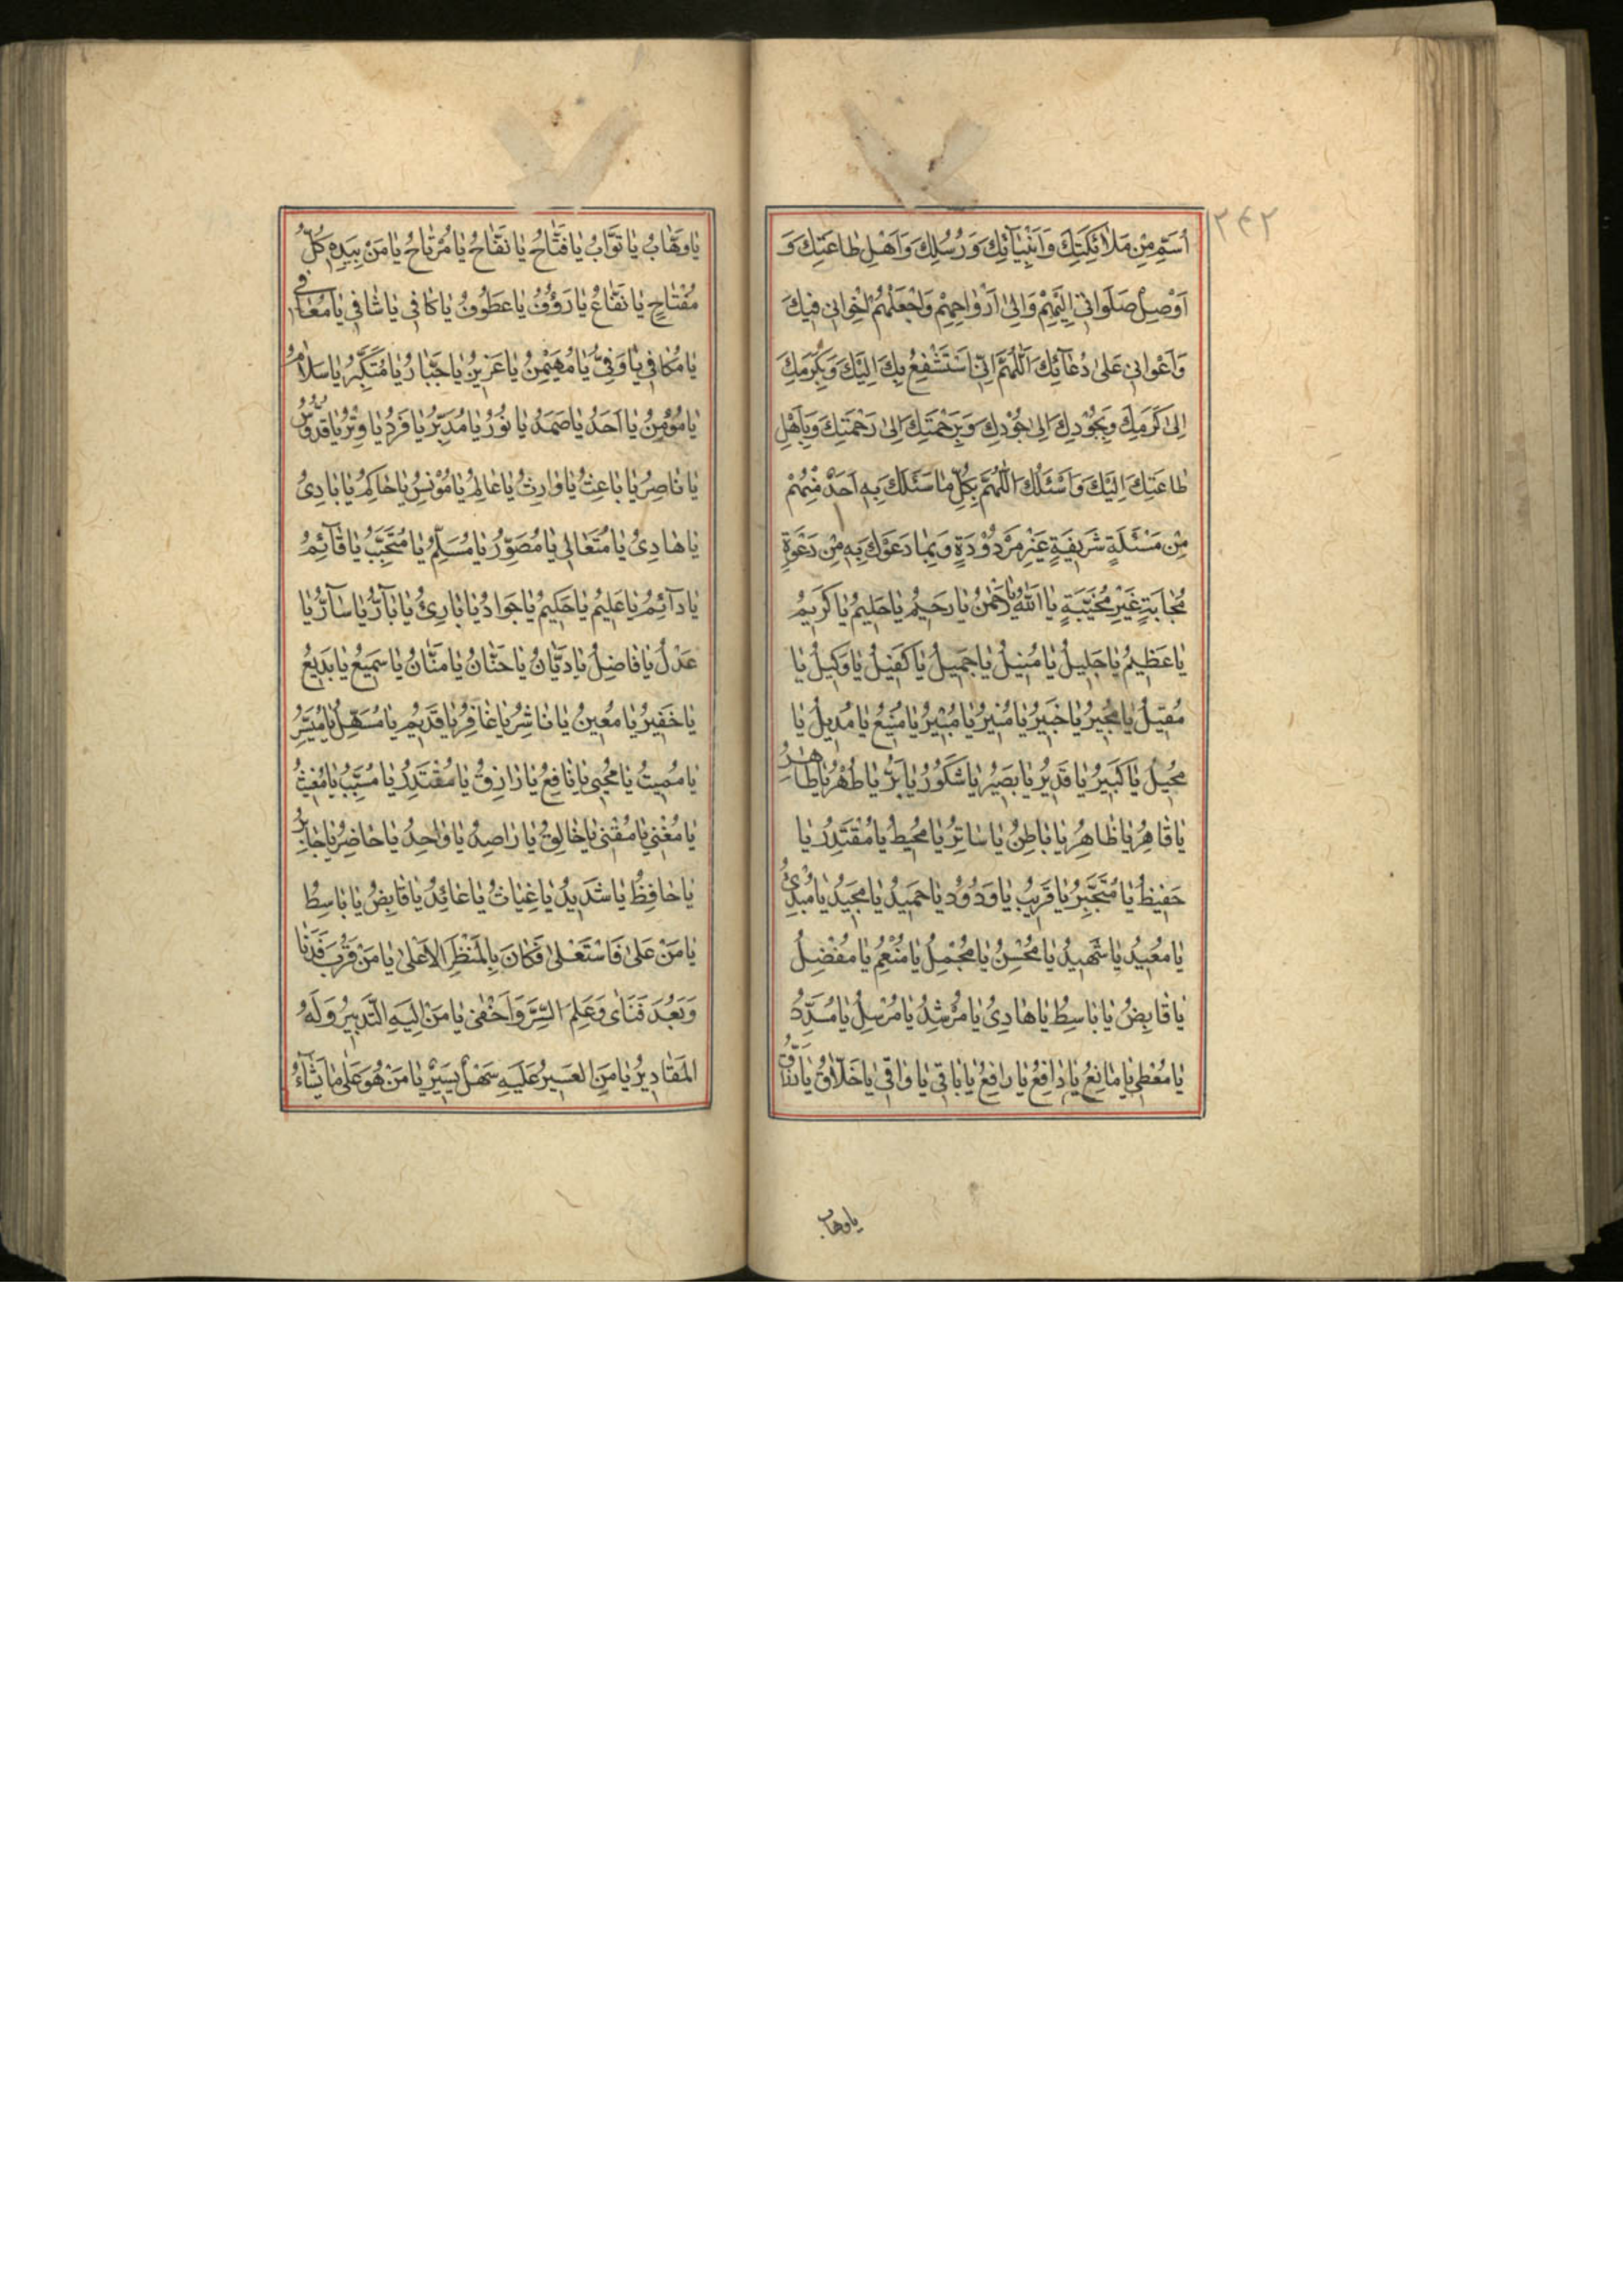 ٢٤٢
اُسَمِّ مِنْ مَلاٰئِكَتِكَ وَاَنْبِيٰآئِكَ وَرُسُلِكَ وَاَهْلِ طٰاعَتِكَ وَ
اَوْصِلْ صَلَوٰاتي اِلَيْهِمْ وَاِلىٰ اَرْوٰاحِهِمْ وَاجْعَلْهُمْ اِخْوٰاني فيكَ
وَاَعْوٰاني عَلىٰ دُعٰآئِكَ اَللّٰهُمَّ اِنّي اَسْتَشْفِعُ بِكَ اِلَيْكَ وَبِكَرَمِكَ
اِلىٰ كَرَمِكَ وَبِجُوْدِكَ اِلىٰ جُوْدِكَ وَبِرَحْمَتِكَ اِلىٰ رَحْمَتِكَ وَبِاَهْلِ
طٰاعَتِكَ اِلَيْكَ وَاَسْئَلُكَ اللّٰهُمَّ بِكُلِّ مٰا سَئَلَكَ بِهِ اَحَدٌ مِنْهُمْ
مِنْ مَسْئَلَةٍ شَريفَةٍ غَيْرِ مَرْدُوْدَةٍ وَبِمٰا دَعَوْكَ بِهِ مِنْ دَعْوَةٍ
مُجٰابَةٍ غَيْرِ مُخَيَّبَةٍ يٰا اَللّٰهُ يٰا رَحْمٰنُ يٰا رَحيمُ يٰا حَليمُ يٰا كَريمُ
يٰا عَظيمُ يٰا جَليلُ يٰا مُنيلُ يٰا جَميلُ يٰا كَفيلُ يٰا وَكيلُ يٰا
مُقيلُ يٰا مُجيرُ يٰا خَبيرُ يٰا مُنيرُ يٰا مُبيرُ يٰا مَنيعُ يٰا مُديلُ يٰا
مُحيلُ يٰا كَبيرُ يٰا قَديرُ يٰا بَصيرُ يٰا شَكُوْرُ يٰا بَرُّ يٰا طُهْرُ يٰا طٰاهِرُ
يٰا قٰاهِرُ يٰا ظٰاهِرُ يٰا بٰاطِنُ يٰا سٰاتِرُ يٰا مُحيطُ يٰا مُقْتَدِرُ يٰا
حَفيظُ يٰا مُتَجَبِّرُ يٰا قَريبُ يٰا وَدُوْدُ يٰا حَميدُ يٰا مَجيدُ يٰا مُبْدِئُ
يٰا مُعيدُ يٰا شَهيدُ يٰا مُحْسِنُ يٰا مُجْمِلُ يٰا مُنْعِمُ يٰا مُفْضِلُ
يٰا قٰابِضُ يٰا بٰاسِطُ يٰا هٰادِيُ يٰا مُرْشِدُ يٰا مُرْسِلُ يٰا مُسَدِّدُ
يٰا مُعْطي يٰا مٰانِعُ يٰا دٰافِعُ يٰا رٰافِعُ يٰا بٰاقي يٰا وٰاقي يٰا خَلاّٰقُ يٰا رَزّٰاقُ
يا وهاب
يٰا وَهّٰابُ يٰا تَوّٰابُ يٰا فَتّٰاحُ يٰا نَفّٰاحُ يٰا مُرْتٰاحُ يٰا مَنْ بِيَدِهِ كُلُّ
مُفْتٰاحٍ يٰا نَفّٰاعُ يٰا رَؤُفُ يٰا عَطُوْفُ يٰا كٰافي يٰا شٰافي يٰا مُعٰافي
يٰا مُكٰافي يٰا وَفِيُّ يٰا مُهَيْمِنُ يٰا عَزيزُ يٰا جَبّٰارُ يٰا مُتَكَبِّرُ يٰا سَلاٰمُ
يٰا مُؤْمِنُ يٰا اَحَدُ يٰا صَمَدُ يٰا نُوْرُ يٰا مُدَبِّرُ يٰا فَرْدُ يٰا وِتْرُ يٰا قُدُّوْسُ
يٰا نٰاصِرُ يٰا بٰاعِثُ يٰا وٰارِثُ يٰا عٰالِمُ يٰا مُوْنِسُ يٰا حٰاكِمُ يٰا بٰادِيُ
يٰا هٰادِيُ يٰا مُتَعٰالي يٰا مُصَوِّرُ يٰا مُسَلِّمُ يٰا مُتَحَبِّبُ يٰا قٰآئِمُ
يٰا دٰآئِمُ يٰا عَليمُ يٰا حَكيمُ يٰا جَوٰادُ يٰا بٰارِئُ يٰا بٰآرُّ يٰا سٰآرُّ يٰا
عَدْلُ يٰا فٰاضِلُ يٰا دَيّٰانُ يٰا حَنّٰانُ يٰا مَنّٰانُ يٰا سَميعُ يٰا بَديعُ
يٰا خَفيرُ يٰا مُعينُ يٰا نٰاشِرُ يٰا غٰافِرُ يٰا قَديمُ يٰا مُسَهِّلُ يٰا مُيَسِّرُ
يٰا مُميتُ يٰا مُحْيي يٰا نٰافِعُ يٰا رٰازِقُ يٰا مُقْتَدِرُ يٰا مُسَبِّبُ يٰا مُغيثُ
يٰا مُغْني يٰا مُقْني يٰا خٰالِقُ يٰا رٰاصِدُ يٰا وٰاحِدُ يٰا حٰاضِرُ يٰا جٰابِرُ
يٰا حٰافِظُ يٰا شَديدُ يٰا غِيٰاثُ يٰا عٰائِدُ يٰا قٰابِضُ يٰا بٰاسِطُ
يٰا مَنْ عَلىٰ فَاسْتَعْلىٰ فَكٰانَ بِالْمَنْظَرِ الْاَعْلىٰ يٰا مَنْ قَرُبَ فَدَنٰا
وَبَعُدَ فَنَاىٰ وَعَلِمَ السِّرَّ وَاَخْفىٰ يٰا مَنْ اِلَيْهِ التَّدْبيرُ وَلَهُ
الْمَقٰاديرُ يٰا مَنِ الْعَسيرُ عَلَيْهِ سَهْلٌ يَسيرٌ يٰا مَنْ هُوَ عَلىٰ مٰا يَشٰآءُ